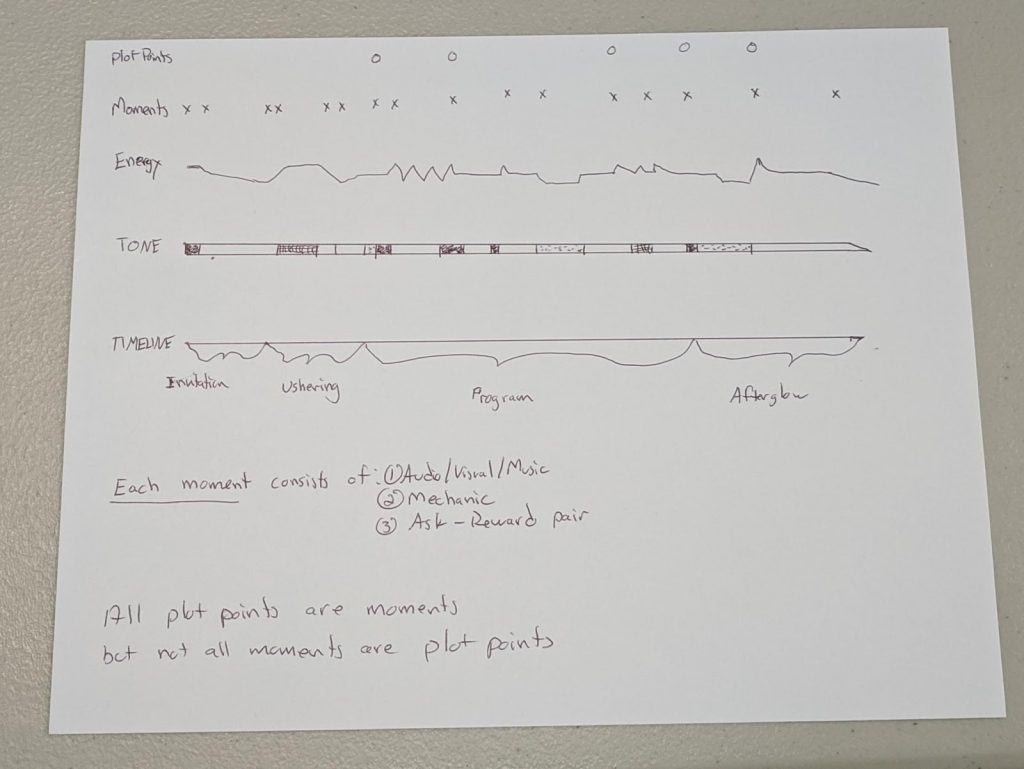 Plot Points
Moments
Energy
TONE
TIMELINE
Invitation
Ushering
Program
Afterglow
Each moment consists of: ① Audio/Visual/Music
② Mechanic
③ Ask - Reward pair
All plot points are moments
but not all moments are plot points